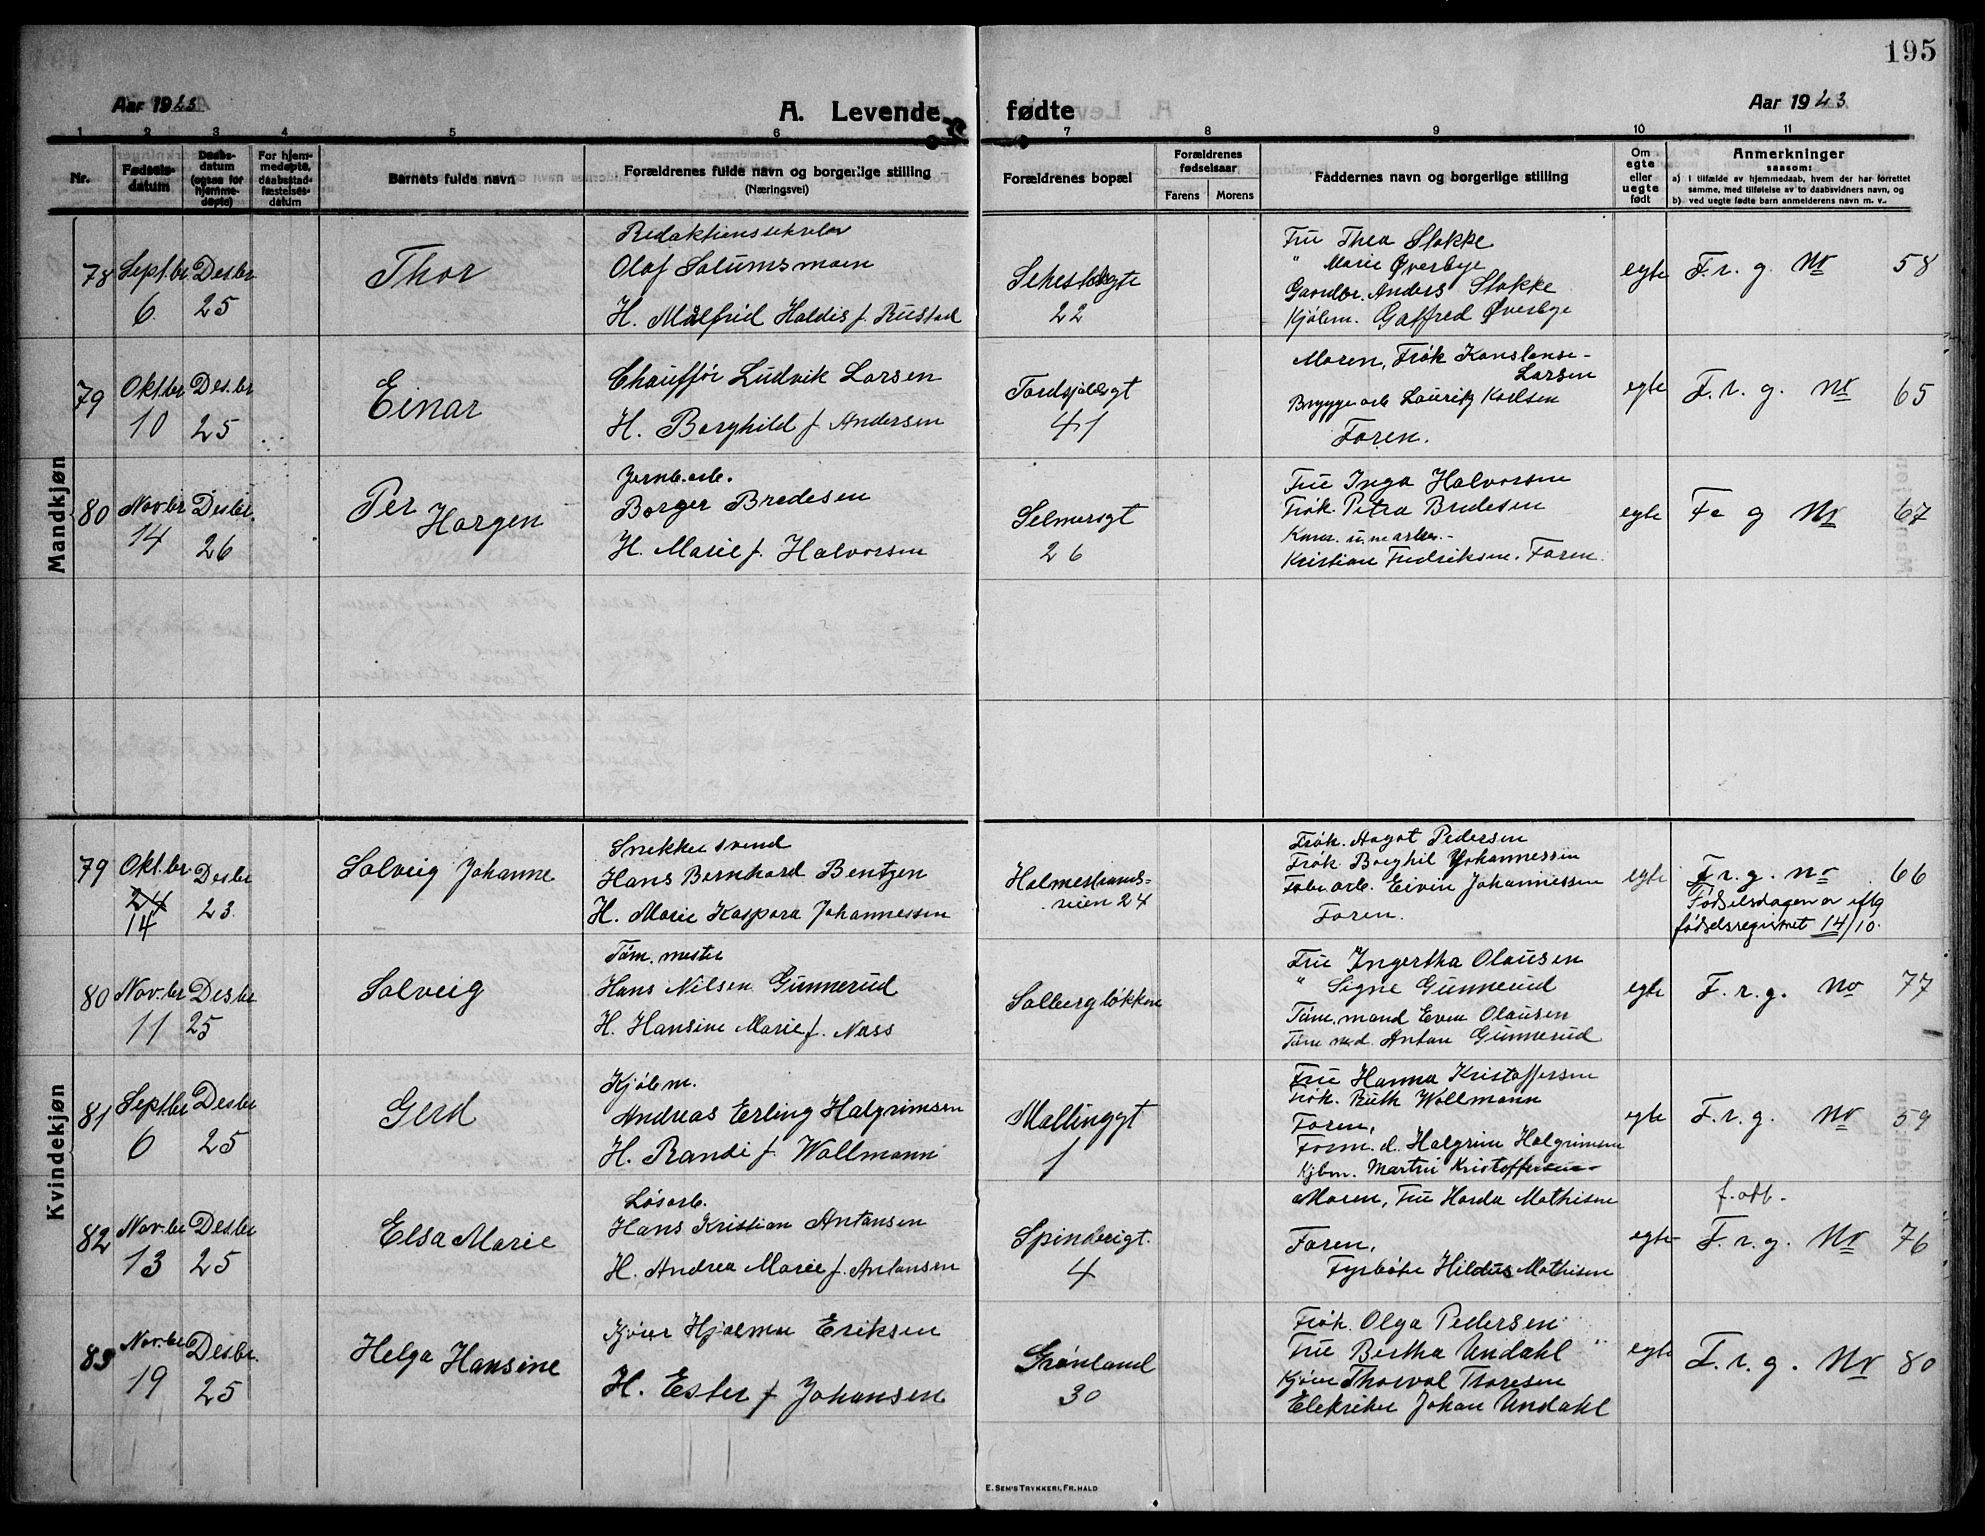 195
Aar 1923
A. Levende
fødte
Aar 1923
1 2 3 4 5 6 7 8 9 10 11
Nr.
Fødsels-
datum
Daabs-
datum
(ogsaa for
hjemme-
døpte)
For hjem-
medøpte,
daabsstad-
fæstelses-
datum
Barnets fulde navn
Forældrenes fulde navn og borgerlige stilling
(Næringsvei)
Forældrenes bopæl
Forældrenes
fødselsaar
Farens Morens
Faddernes navn og borgerlige stilling
Om
egte
eller
uegte
født
Anmerkninger
saasom:
a) I tilfælde av hjemmedaab, hvem der har forrettet
samme, med tilføielse av to daabsvidners navn, og
b) ved uegte fødte barn anmelderens navn m. v..
Mandkjøn
78 Septbr Desbr
6 25
Thor
Redaktionssekretær
Olaf Solumsmoen
H. Målfrid Haldis f. Rustad
22
Fru Thea Stokke
" Marie Øverbye
Gaardbr. Anders Stokke
Kjølem. Gotfred Øverbye
egte F. r. g. No 58
79 Oktbr Desbr
10 25
Einar
Chauffør Ludvik Larsen
H. Borghild f. Andersen
41
Moren, Frøk Konstanse
Larsen
Bryggearb Lauritz Karlsen
Faren.
egte F. r. g. No 65
80 Novbr Desbr.
14 26
Per
Horgen
Jernb.arb.
Borger Bredesen
H. Marie f. Halvorsen
Selmersgt
26
Fru Inga Halvorsen
Frøk. Petra Bredesen
Kristian Fredriksen. Faren.
egte F. g No 67
Kvindekjøn
79 Oktbr. Desbr
24 23.
14
Solveig Johanne
Snekkersvend
Hans Bernhard Bentzen
H. Marie Kaspara Johannessen
Holmestrands-
veien 24
Frøk. Aagot Pedersen
Frøk. Borghil Johannessen
Fabr.arb. Eivin Johannessen
Faren.
egte F. r. g. no 66
Fødselsdagen er eftg
fødselsregistret 14/10.
80 Novbr Desbr
11 25
Solveig
Tøm. mester
Hans Nilsen Gunnerud
H. Hansine Marie f. Nass
Solbergløkken
Fru Ingertha Olausen
" Signe Gunnerud
Tøm. mand Even Olausen
Tøm md. Anton Gunnerud
egte F. r. g. No 77
81 Septbr Desbr
6 25
Gerd
Kjølem.
Andreas Erling Halgrimsen
H. Randi f. Wollmann
Mallinggt
1
Fru Hanna Kristoffersen
Frøk. Ruth Wollmann
Faren,
Form. d. Halgrim Halgrimsen
Kjbm. Martin Kristoffersen
egte F. r. g. No 59
82 Novbr Desbr
13 25
Elsa Marie
Løsarb.
Hans Kristian Antonsen
H. Andrea Marie f. Antonsen
Spinderigt.
4
Moren, Fru Horda Mathisen
Faren,
Fyrbøter Hildus Mathisen
egte F. r. g. No 76
83 Novbr Desbr.
19 25
Helga Hansine
Kjører Hjalmar Eriksen
H. Ester f. Johansen
Grønland
30
Frøk. Olga Pedersen
Fru Bertha Undahl "
Kjører Thorval Thoresen
Elektriker Johan Undahl
egte F. r. g. No 80
E. SEM'S TRYKKERI, FR.HALD